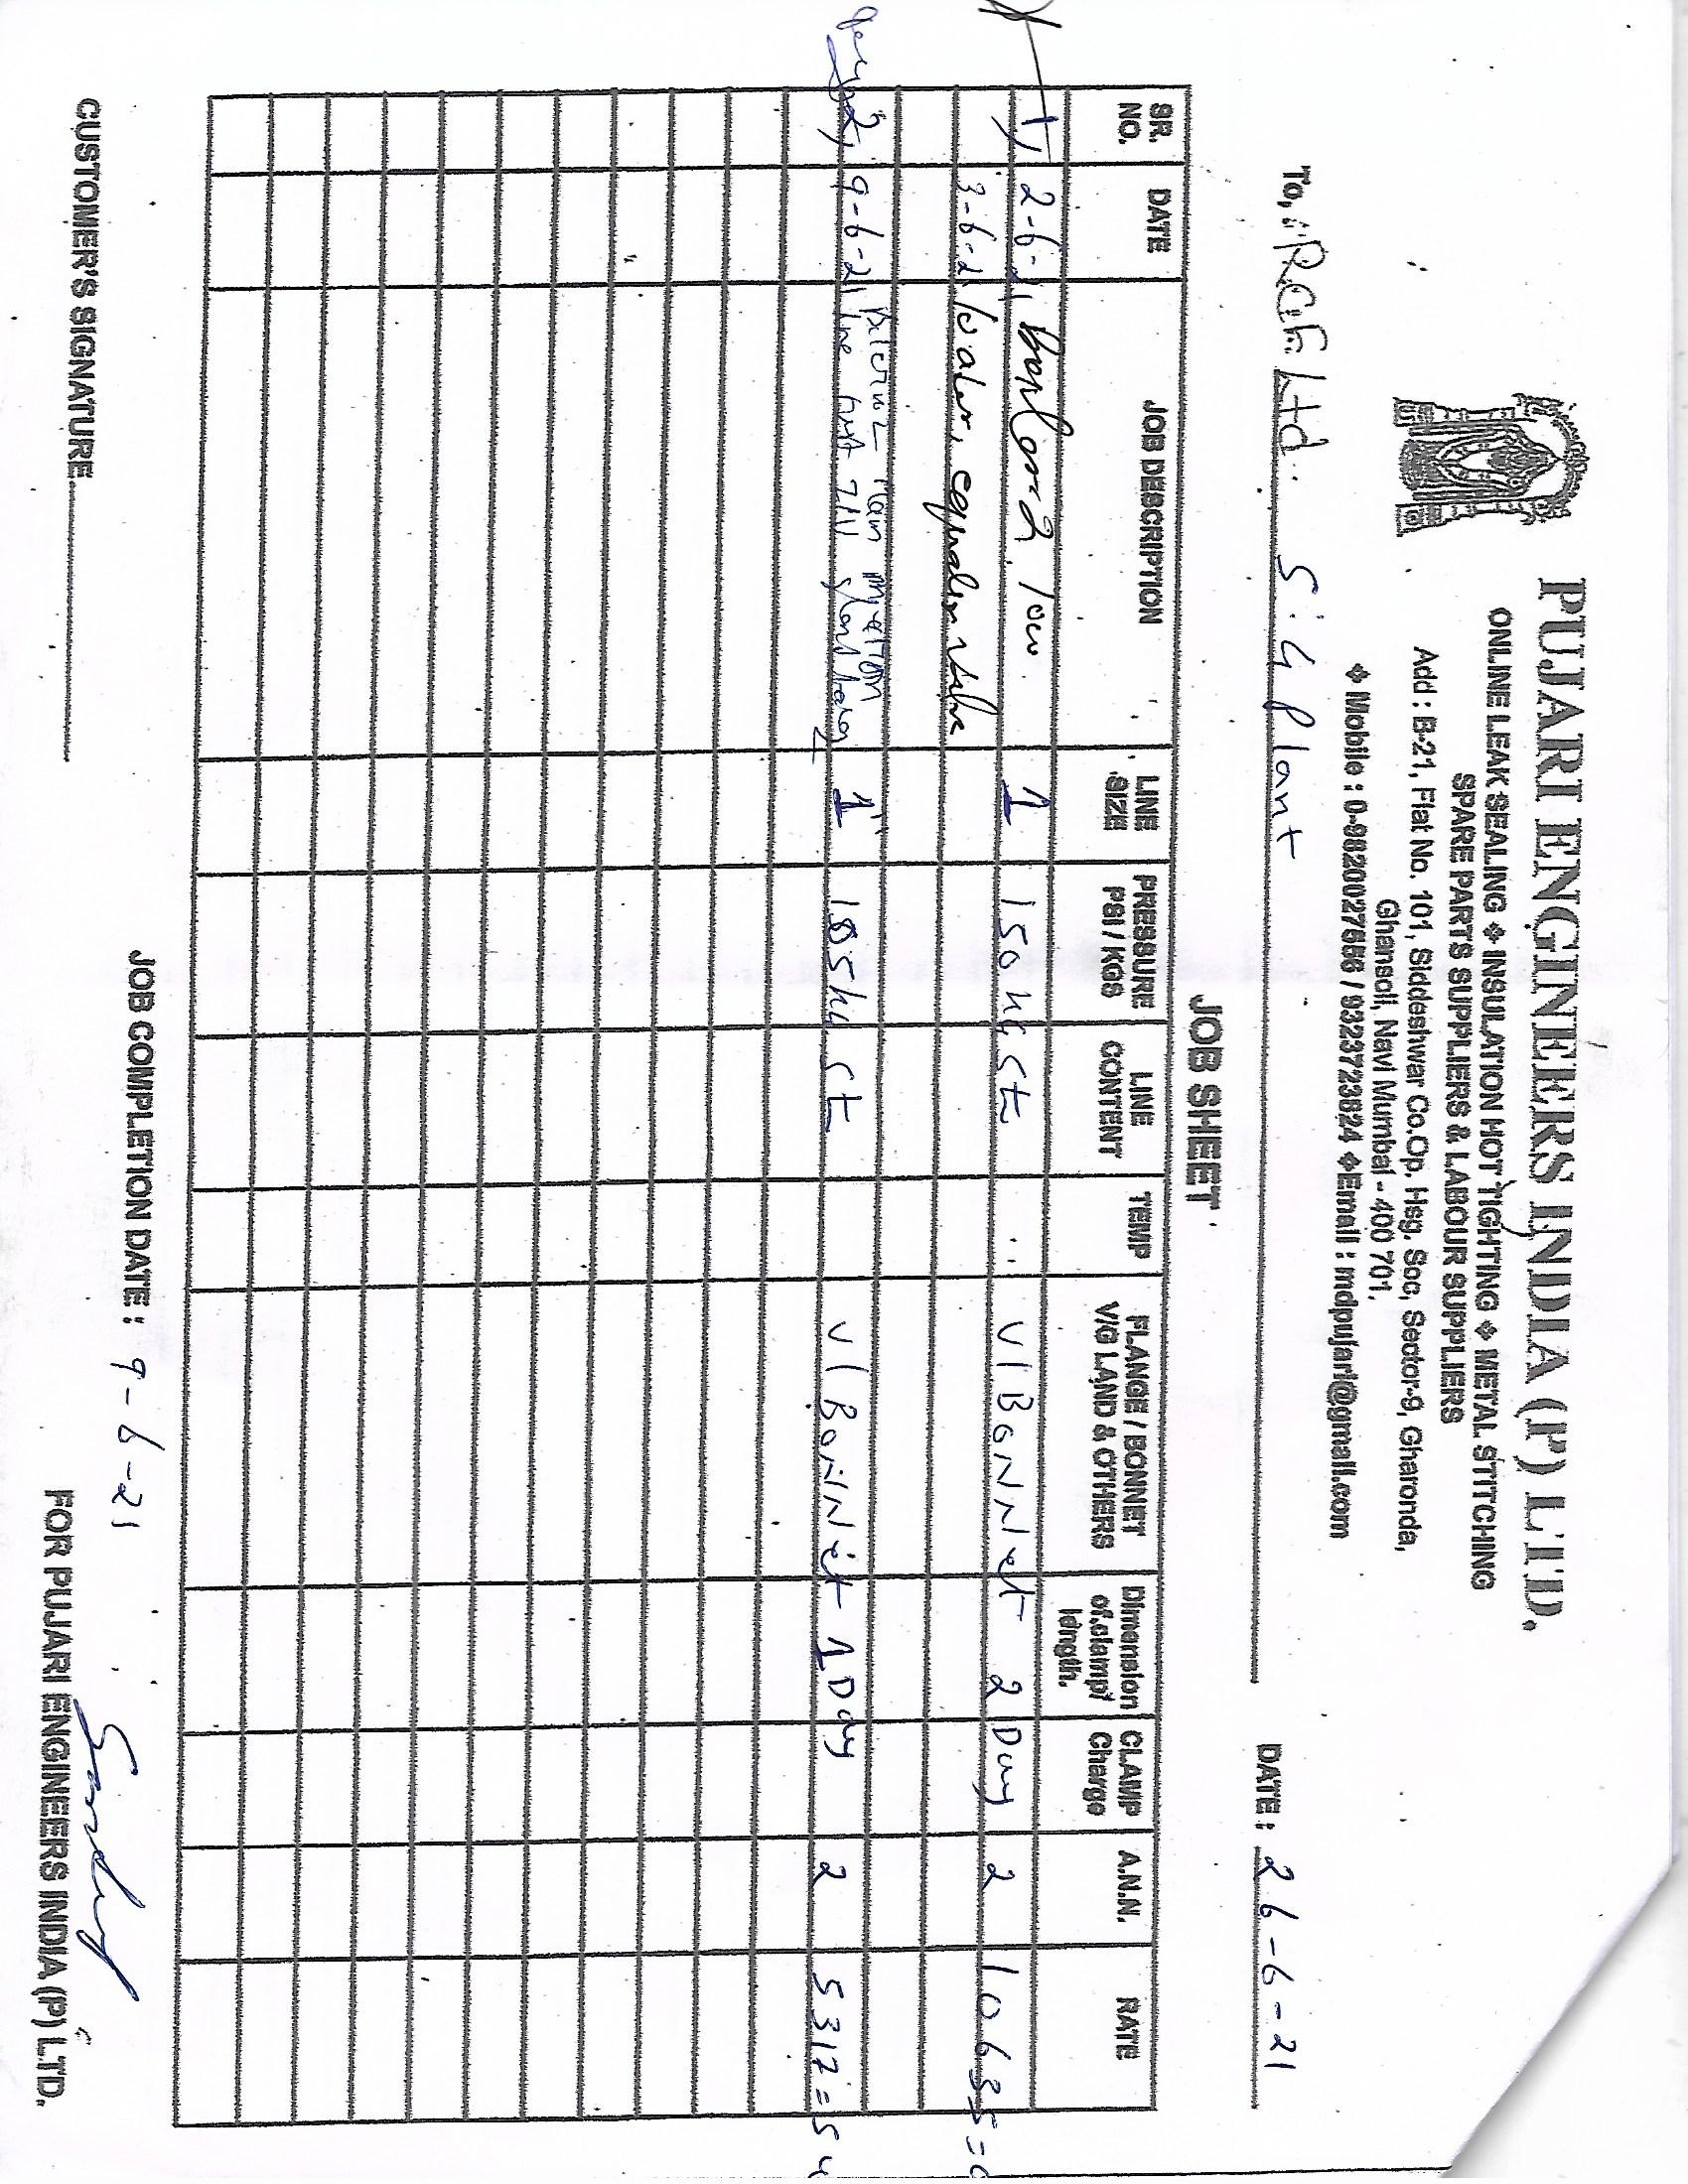 PUJARI ENGINEERS INDIA (P) LTD.
ONLINE LEAK SEALING ❖ INSULATION HOT TIGHTING ❖ METAL STITCHING
SPARE PARTS SUPPLIERS & LABOUR SUPPLIERS
Add : B-21, Flat No. 101, Siddeshwar Co.Op. Hsg. Soc, Sector-9, Gharonda,
Ghansoli, Navi Mumbai - 400 701,
❖ Mobile : 0-9820027656 / 9323723824 ❖Email : mdpujari@gmail.com
To, R.C.F. Ltd. 5:4 Plant DATE : 26-6-21
JOB SHEET
SR. NO. DATE JOB DESCRIPTION LINE SIZE PRESSURE PSI / KGS LINE CONTENT TEMP FLANGE / BONNET V/G LAND & OTHERS Dimension of.clamp/ length. CLAMP Charge A.N.N. RATE
1, 2-6-21 low 1 150 st V/BONNet 2 Day 2 10635=0
3-6-21 water valve
2, 9-6-21 Main line 1" 105 st V/BONNet 1 Day 2 5317=5
JOB COMPLETION DATE : 9-6-21
CUSTOMER'S SIGNATURE
FOR PUJARI ENGINEERS INDIA (P) LTD.